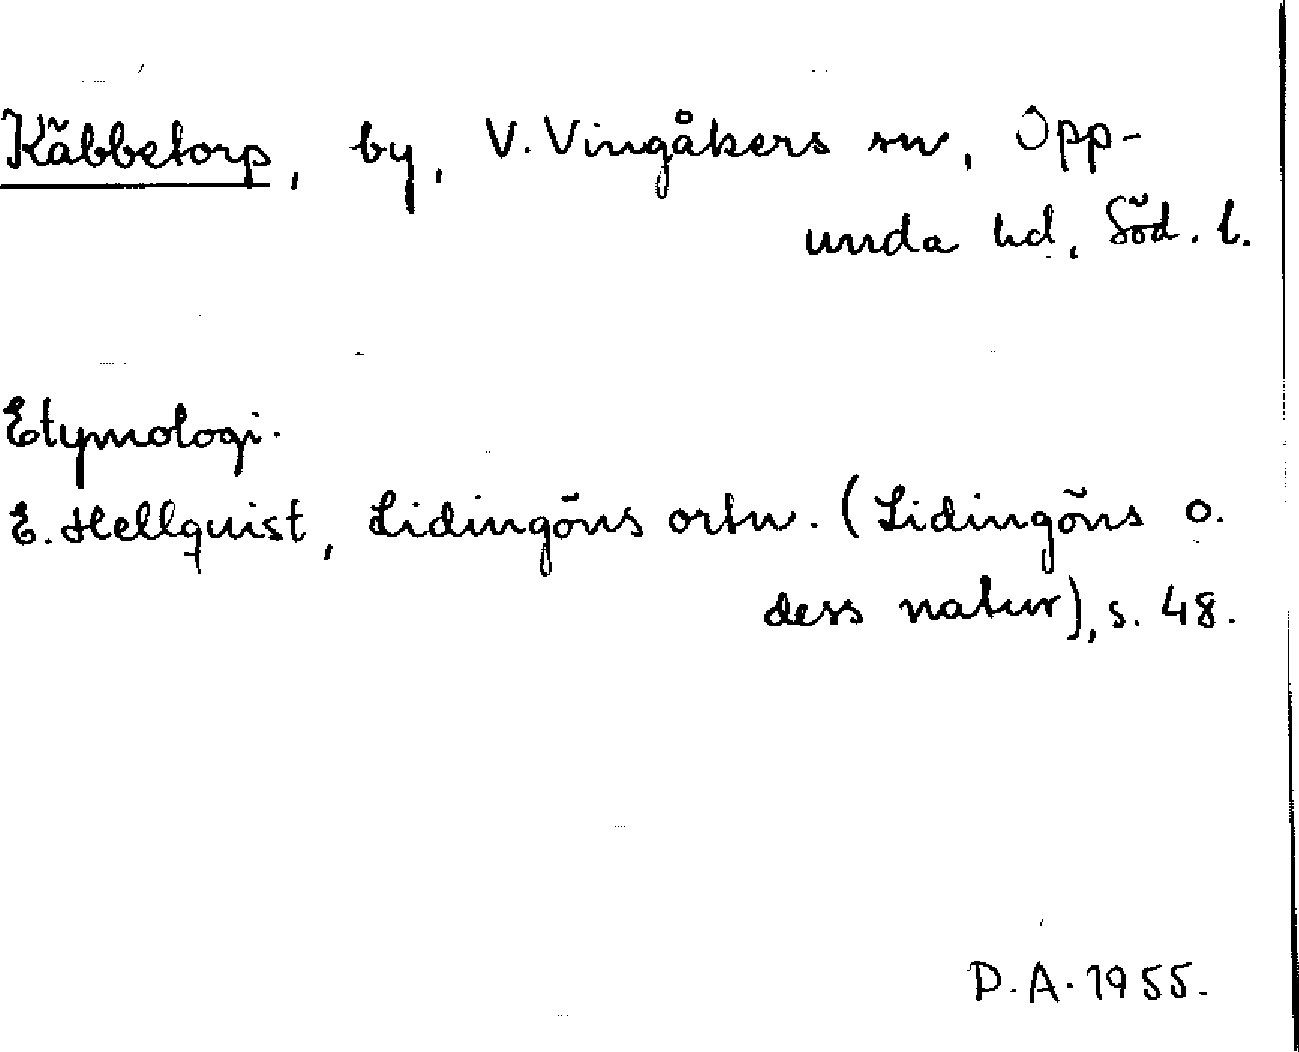 Käbbetorp, by, V. Vingåkers sn, Opp-
unda hd, Söd. l.
Etymologi.
E. Hellquist, Lidingöns ortn. (Lidingöns o.
dess natur), s. 48.
D. A. 1955.